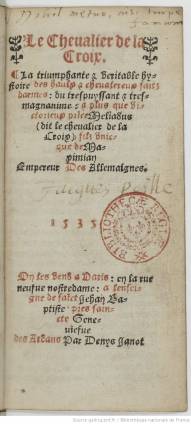 Le Chevalier de la
Croix.
La triumphante & veritable hy
stoire des haulx & chevalereux faictz
darmes: du trespuyssant & tres
magnanime: & plus que vi
ctorieux prince Meliadus
(dit le chevalier de la
Croix) filz unic
que de Ma
ximian
Empereur Des Allemaignes.
1535
BIBLIOTHECAE REGIAE
On les vend a Paris: en la rue
neufve nostredame: a lensei
gne de sainct Jehan Ba
ptiste pres sain
cte Gene
viefve
des Ardans Par Denys Janot
Source gallica.bnf.fr / Bibliothèque nationale de France